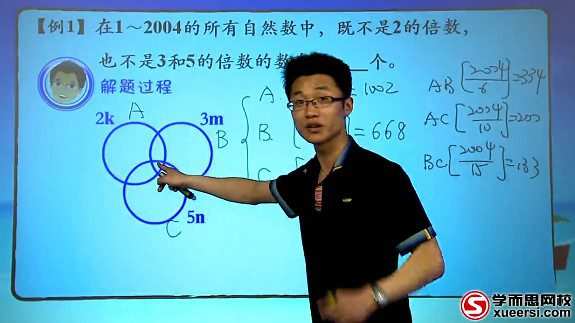 【例1】在1～2004的所有自然数中，既不是2的倍数，
也不是3和5的倍数的数 个。
解题过程
A
2k
3m
B
5n
C
A = 1002
B = 668
C
AB [2004/6] = 334
AC [2004/10] = 200
BC [2004/15] = 133
学而思网校
xueersi.com